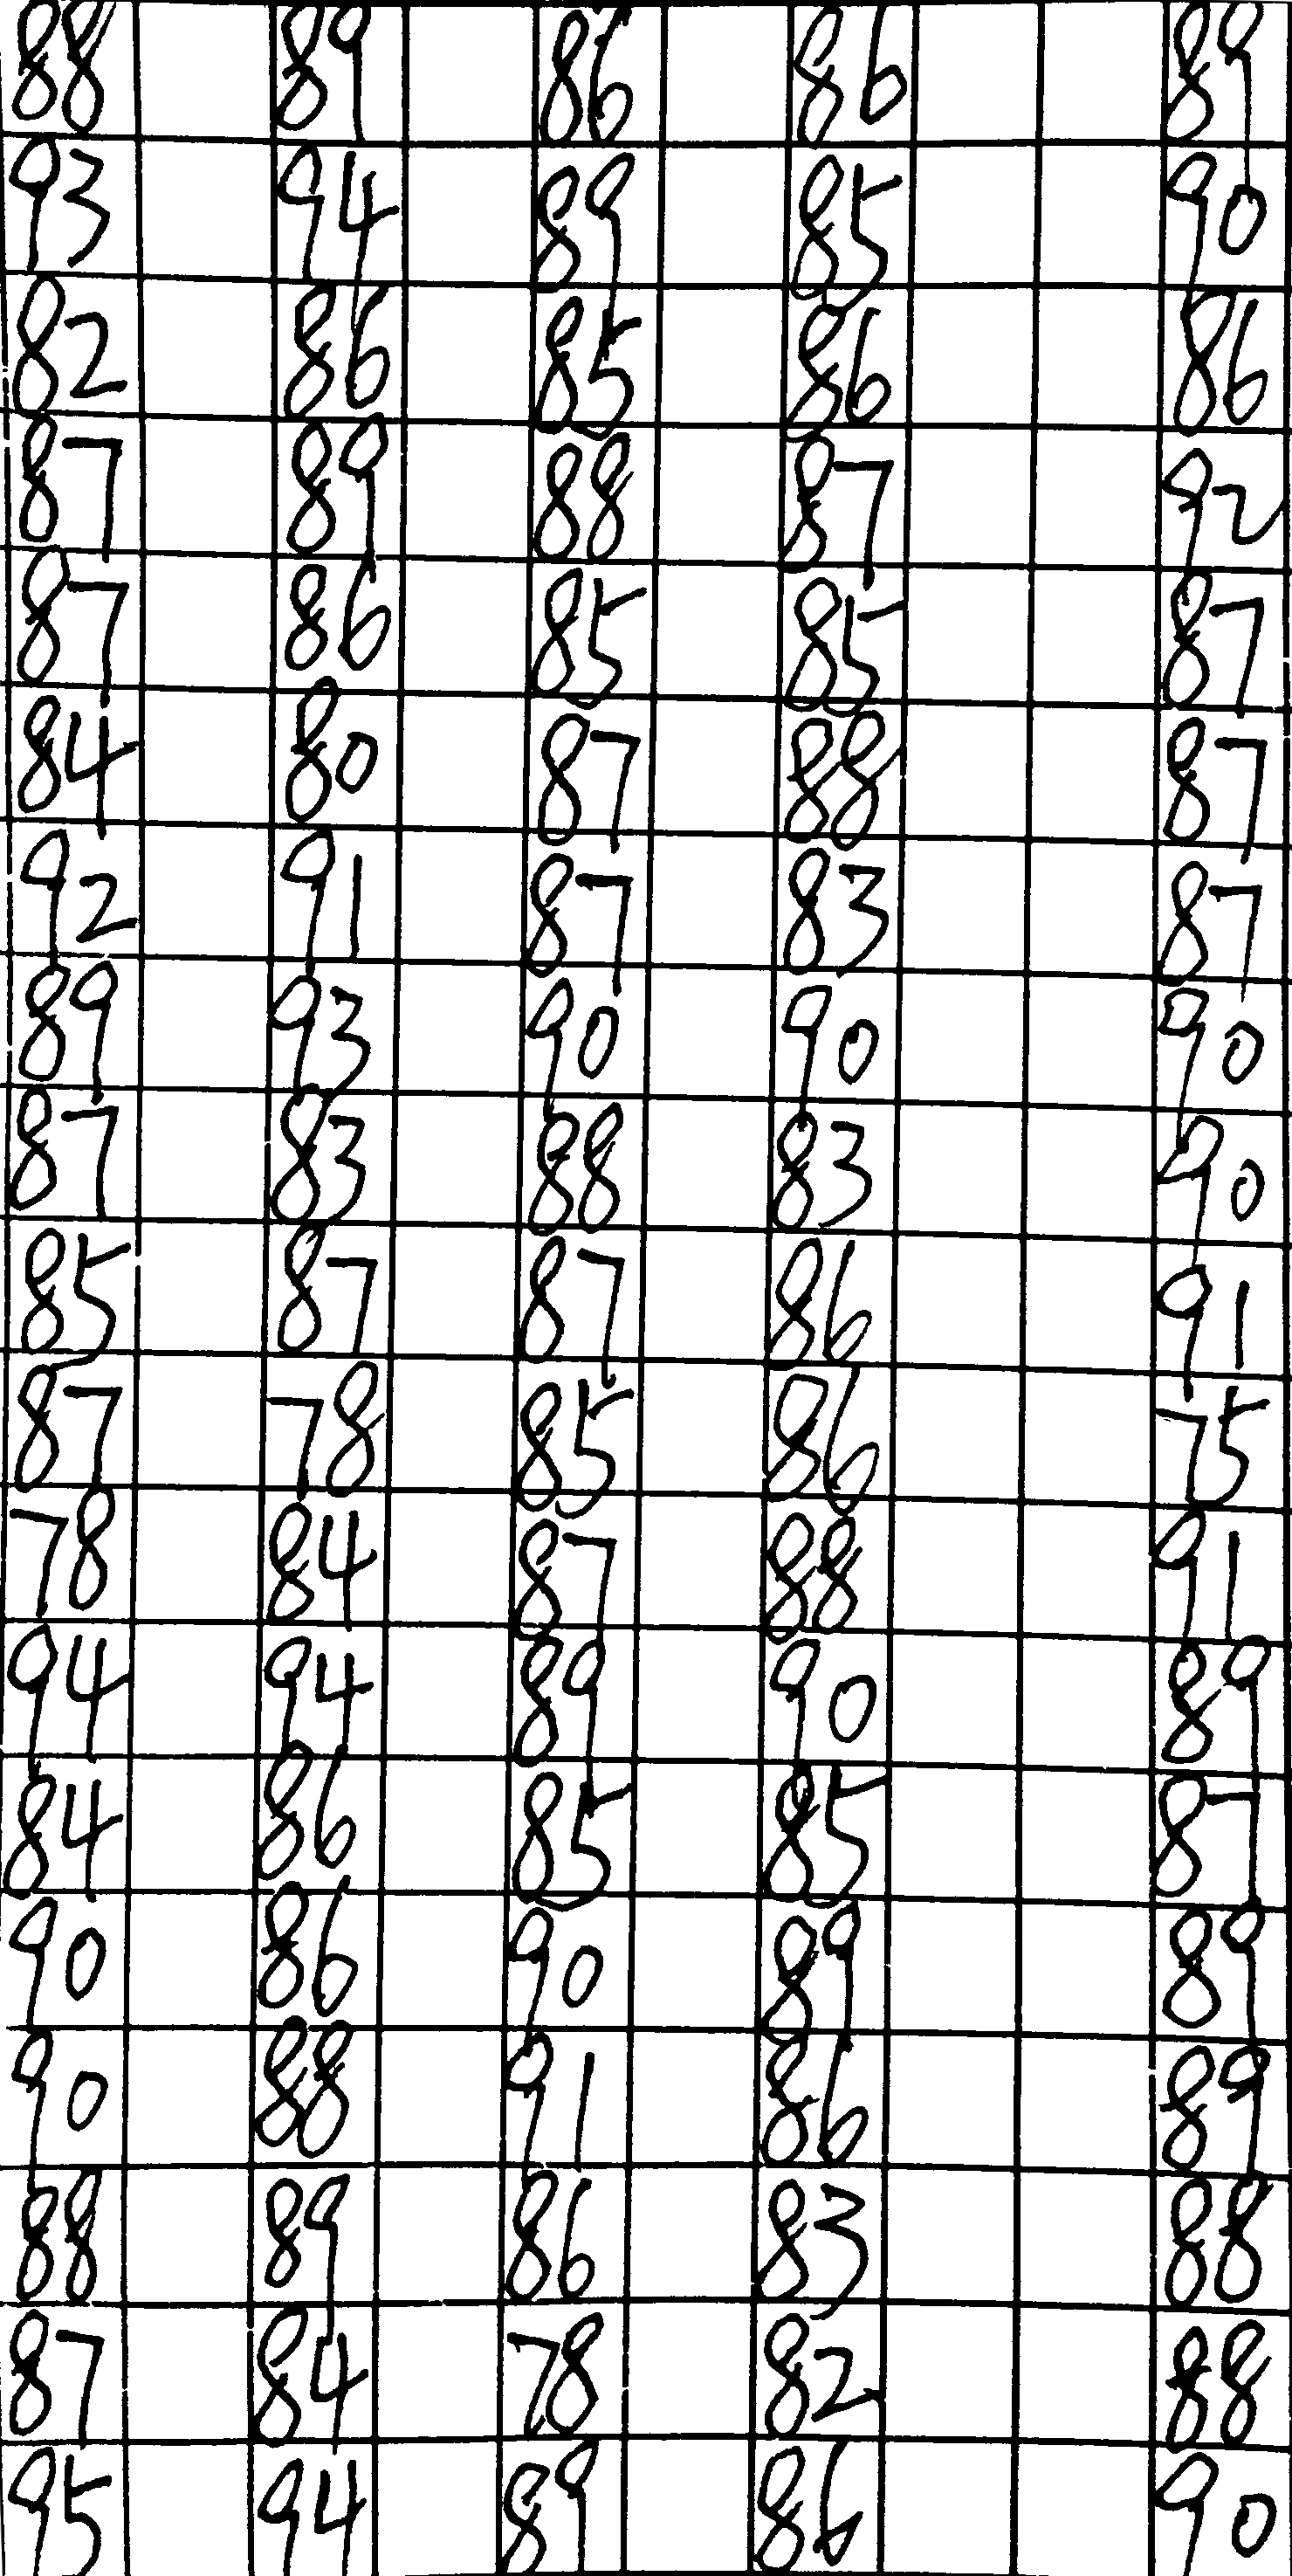 88 89 86 86 89
93 94 89 85 90
82 86 85 86 86
87 89 88 87 92
87 86 85 85 87
84 80 87 88 87
92 91 87 83 87
89 93 90 90 90
87 83 88 83 90
85 87 87 86 91
87 78 85 86 75
78 84 87 88 91
94 94 89 90 89
84 86 85 85 87
90 86 90 89 89
90 88 91 86 89
88 89 86 83 88
87 84 78 82 88
95 94 89 86 90